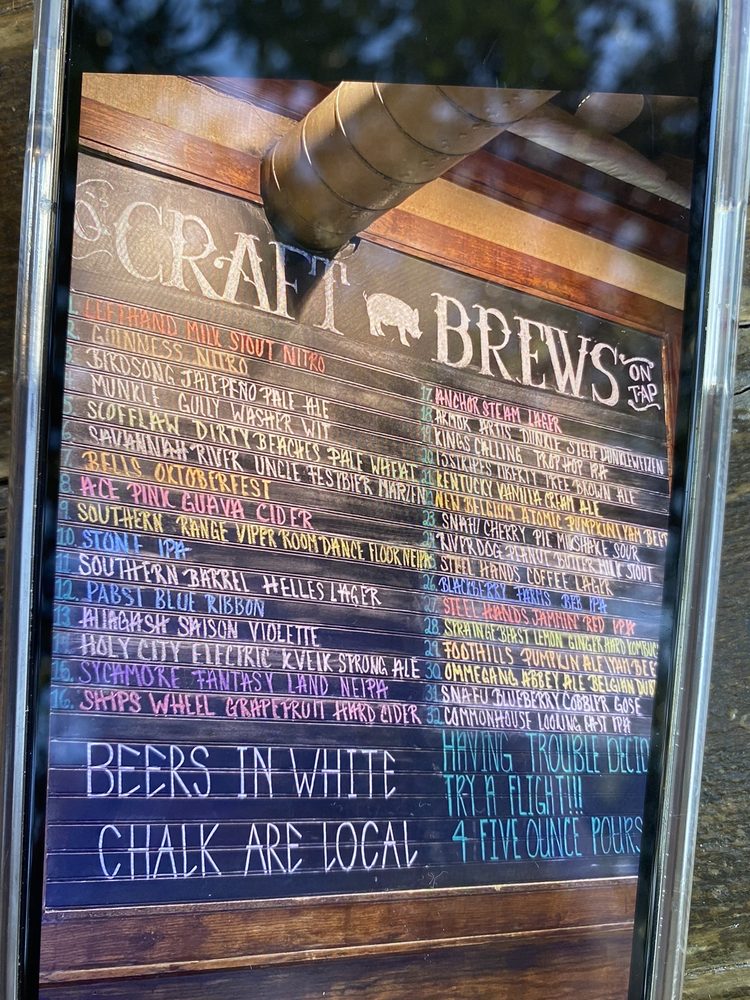 CRAFT BREWS ON TAP
1. LEFTHAND MILK STOUT NITRO
2. GUINNESS NITRO
3. BIRDSONG JALEPEÑO PALE ALE
MUNKLE GULLY WASHER WIT
5. SCOFFLAW DIRTY BEACHES PALE WHEAT
6. SAVANNAH RIVER UNCLE FESTBIER MARZEN
7. BELLS OKTOBERFEST
8. ACE PINK GUAVA CIDER
9. SOUTHERN RANGE VIPER ROOM DANCE FLOOR NEIPA
10. STONE IPA
11. SOUTHERN BARREL HELLES LAGER
12. PABST BLUE RIBBON
13. ALLAGASH SAISON VIOLETTE
14. HOLY CITY ELECTRIC KVEIK STRONG ALE
15. SYCAMORE FANTASY LAND NEIPA
16. SHIPS WHEEL GRAPEFRUIT HARD CIDER
17. ANCHOR STEAM LAGER
18. ARMOR ARTIS DUNKLE DUNKLEWEIZEN
19. KINGS CALLING TROP HOP IPA
20. 13 STRIPES LIBERTY TREE BROWN ALE
21. KENTUCKY VANILLA CREAM ALE
22. NEW BELGIUM ATOMIC PUMPKIN YAM BEER
23. SNAFU CHERRY PIE MILKSHAKE SOUR
24. RIVERDOG PEANUT BUTTER MILK STOUT
STEEL HANDS COFFEE LAGER
26. BLACKBERRY FARMS BFB IPA
27. STEEL HANDS JAMMIN RED IPA
28. STRAINGE BEAST LEMON GINGER HARD KOMBUC
29. FOOTHILLS PUMPKIN ALE YAM BEE
30. OMMEGANG ABBEY ALE BELGIAN DUB
31. SNAFU BLUEBERRY COBBLER GOSE
32. COMMONHOUSE LOOKING EAST IPA
BEERS IN WHITE
CHALK ARE LOCAL
HAVING TROUBLE DECID
TRY A FLIGHT!!!
4 FIVE OUNCE POURS